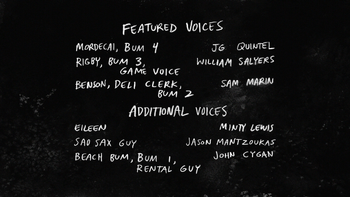 FEATURED VOICES
MORDECAI, BUM 4 JG QUINTEL
RIGBY, BUM 3, WILLIAM SALYERS
GAME VOICE
BENSON, DELI CLERK, SAM MARIN
BUM 2
ADDITIONAL VOICES
EILEEN MINTY LEWIS
SAD SAX GUY JASON MANTZOUKAS
BEACH BUM, BUM 1, JOHN CYGAN
RENTAL GUY